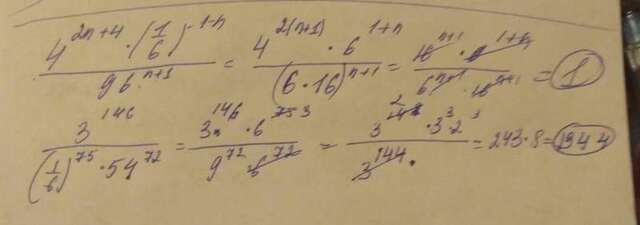 4^{2n+4} · (1/6)^{-1-n} / 96^{n+1} = 4^{2(n+1)} · 6^{1+n} / (6·16)^{n+1} = 16^{n+1} · 6^{1+n} / 6^{n+1} · 16^{n+1} = 1
3^{146} / (1/6)^{75} · 54^{72} = 3^{146} · 6^{75 3} / 9^{72} · 6^{72} = 3^{2} · 3^{3} · 2^{3} / 3^{144} · = 243·8 = 1944